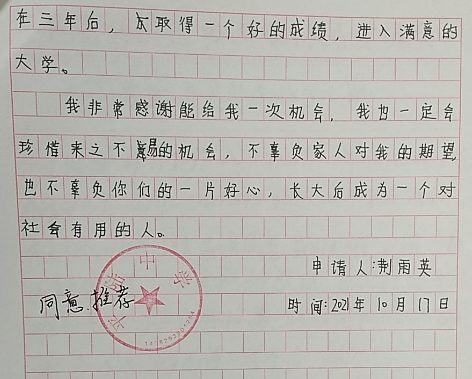 在三年后，求取得一个好的成绩，进入满意的
大学。
我非常感谢能给我一次机会，我也一定会
珍惜来之不易的机会，不辜负家人对我的期望
也不辜负你们的一片好心，长大后成为一个对
社会有用的人。
申请人:荆雨英
同意推荐
时间:2021年10月17日
中学